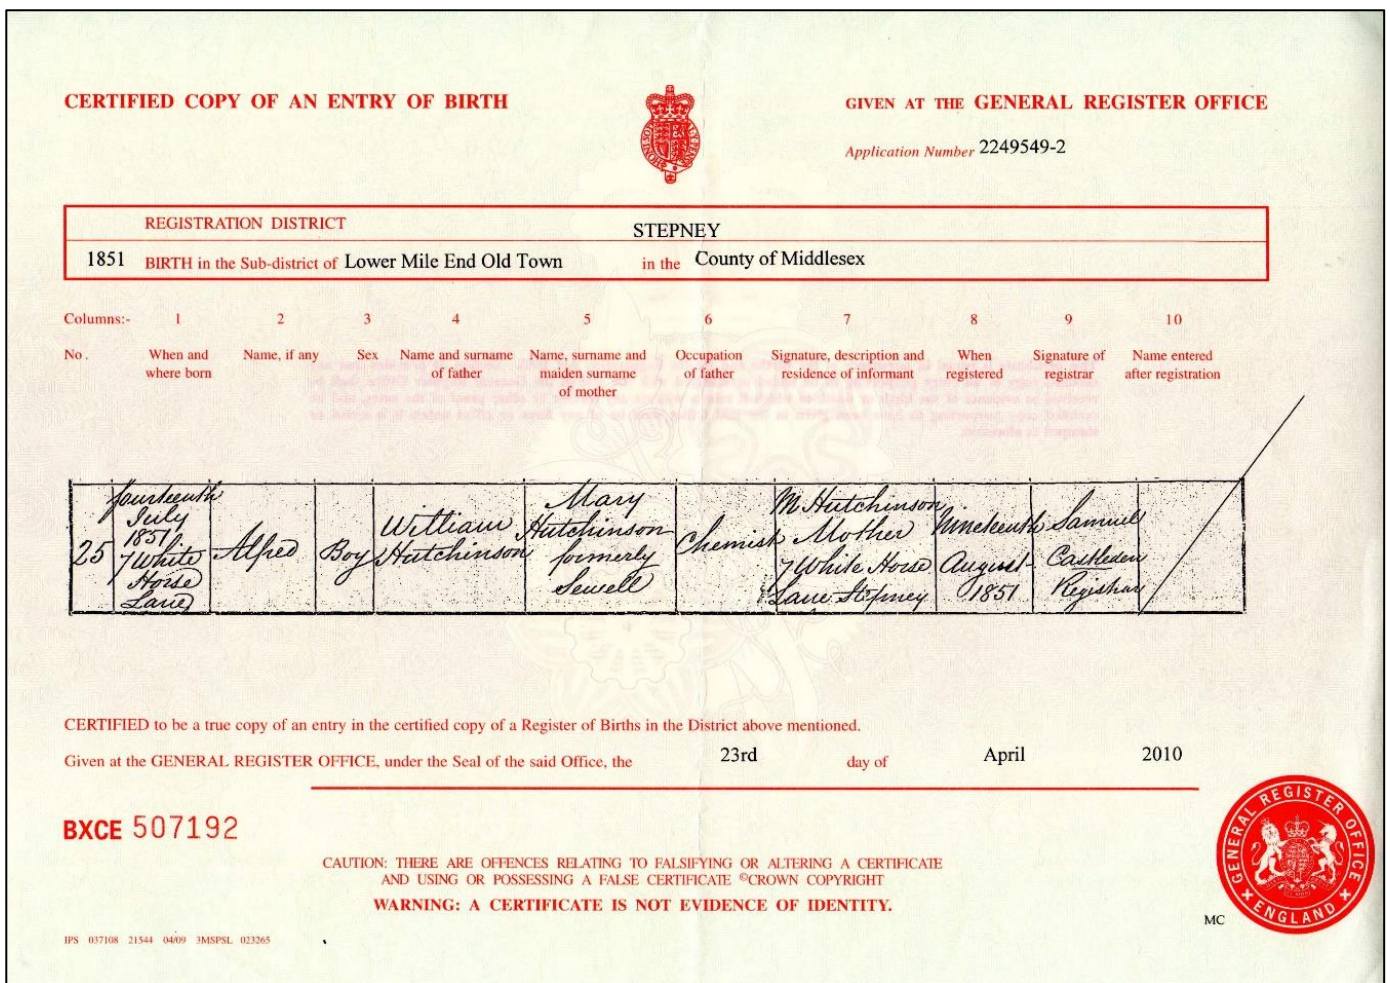 CERTIFIED COPY OF AN ENTRY OF BIRTH
GIVEN AT THE GENERAL REGISTER OFFICE
Application Number 2249549-2
REGISTRATION DISTRICT STEPNEY
1851 BIRTH in the Sub-district of Lower Mile End Old Town in the County of Middlesex
Columns:- 1 2 3 4 5 6 7 8 9 10
No. When and where born
Name, if any
Sex
Name and surname of father
Name, surname and maiden surname of mother
Occupation of father
Signature, description and residence of informant
When registered
Signature of registrar
Name entered after registration
25
fourteenth
July
1851
7 White
Horse
Lane
Alfred
Boy
William
Hutchinson
Mary
Hutchinson
formerly
Sewell
Chemist
M Hutchinson
Mother
7 White Horse
Lane Stepney
Nineteenth
August
1851
Samuel
Castleden
Registrar
CERTIFIED to be a true copy of an entry in the certified copy of a Register of Births in the District above mentioned.
Given at the GENERAL REGISTER OFFICE, under the Seal of the said Office, the 23rd day of April 2010
BXCE 507192
CAUTION: THERE ARE OFFENCES RELATING TO FALSIFYING OR ALTERING A CERTIFICATE
AND USING OR POSSESSING A FALSE CERTIFICATE ©CROWN COPYRIGHT
WARNING: A CERTIFICATE IS NOT EVIDENCE OF IDENTITY.
GENERAL REGISTER OFFICE
ENGLAND
MC
IPS 037108 21544 04/09 3MSPSL 023265